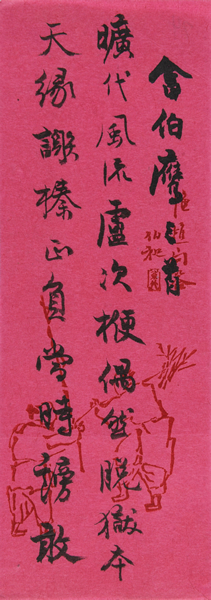 伯摩
曠代風流盧次楩偶然脫獄本
天緣謝榛正負當時謗敢